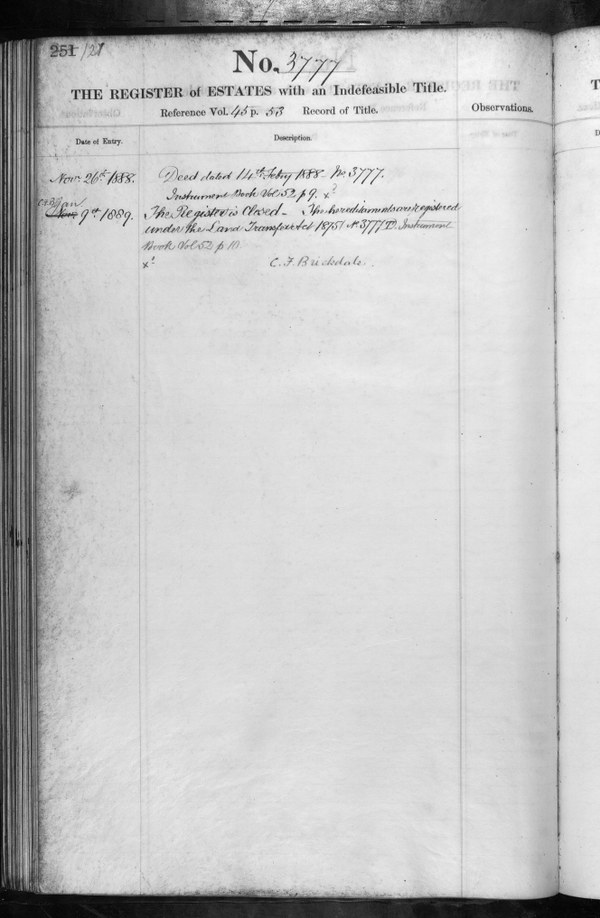 251/21
No. 3777
THE REGISTER of ESTATES with an Indefeasible Title.
Reference Vol. 45 p. 53 Record of Title.
Observations.
Date of Entry.
Description.
Nov: 26th 1888.
Deed dated 14th Febry 1888 No. 3777.
Instrument Book Vol 52 p 9. x
Jan
Nov: 9th 1889.
The Register is Closed – The hereditaments are registered
under the Land Transfer Act 1875 No. 3777 D. Instrument
Book Vol 52 p 10.
x
C. F. Brickdale.